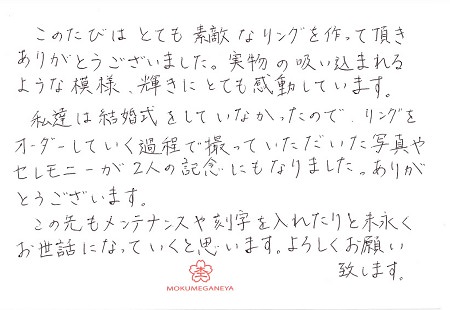 このたびは とても 素敵なリングを作って頂き
ありがとうございました。実物の吸い込まれる
ような模様、輝きにとても感動しています。
私達は結婚式をしていなかったので、リングを
オーダーしていく過程で撮っていただいた写真や
セレモニーが2人の記念にもなりました。ありが
とうございます。
この先もメンテナンスや刻字を入れたりと末永く
お世話になっていくと思います。よろしくお願い
致します。
MOKUMEGANEYA